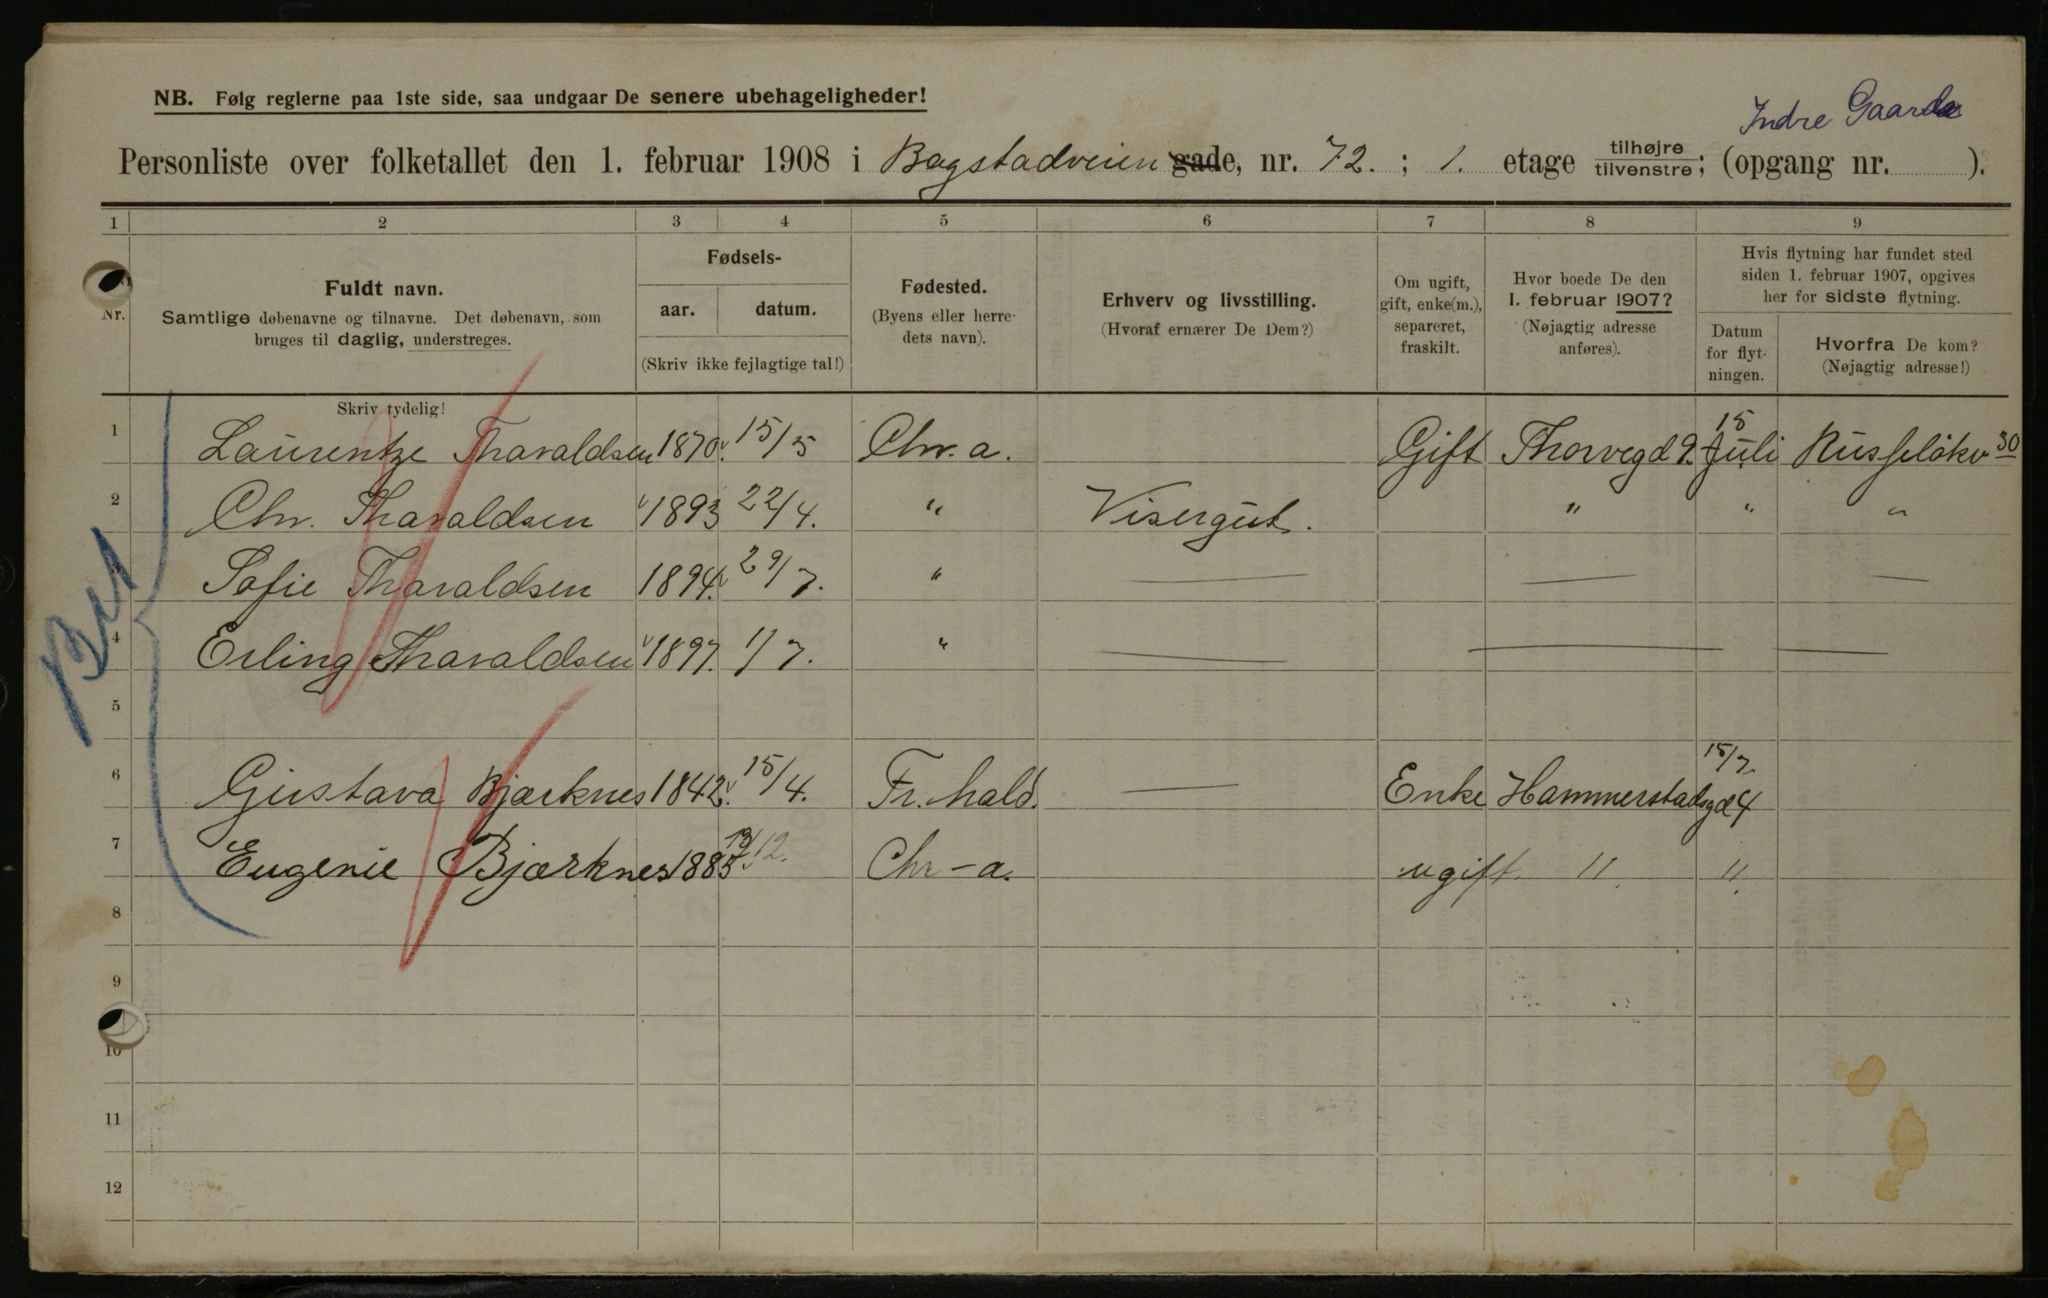 Indre Gaarde
NB. Følg reglerne paa 1ste side, saa undgaar De senere ubehageligheder!
Personliste over folketallet den 1. februar 1908 i Bogstadveien gade, nr. 72. ; 1. etage tilhøjre tilvenstre; (opgang nr. ).
1 2 3 4 5 6 7 8 9
Nr.
Fuldt navn.
Samtlige døbenavne og tilnavne. Det døbenavn, som
bruges til daglig, understreges.
Skriv tydelig!
Fødsels-
aar. datum.
(Skriv ikke fejlagtige tal!)
Fødested.
(Byens eller herre-
dets navn).
Erhverv og livsstilling.
(Hvoraf ernærer De Dem?)
Om ugift,
gift, enke(m.),
separeret,
fraskilt.
Hvor boede De den
1. februar 1907?
(Nøjagtig adresse
anføres).
Hvis flytning har fundet sted
siden 1. februar 1907, opgives
her for sidste flytning.
Datum
for flyt-
ningen.
Hvorfra De kom?
(Nøjagtig adresse!)
1 Laurentze Tharaldsen 1870. 15/5 Chr.a. Gift Thorvegd 9. 15 Juli Russeløkv 30
2 Chr. Tharaldsen 1893 22/4. " Visergut. " " "
3 Sofie Tharaldsen 1894. 29/7. " — — —
4 Erling Tharaldsen 1897. 1/7. " — — —
5
6 Gustava Bjærknes 1842. 15/4. Fr.hald. — Enke Hammerstadsgd 4 15/7.
7 Eugenie Bjærknes 1885 12. Chr-a. ugift. " "
8
9
10
11
12